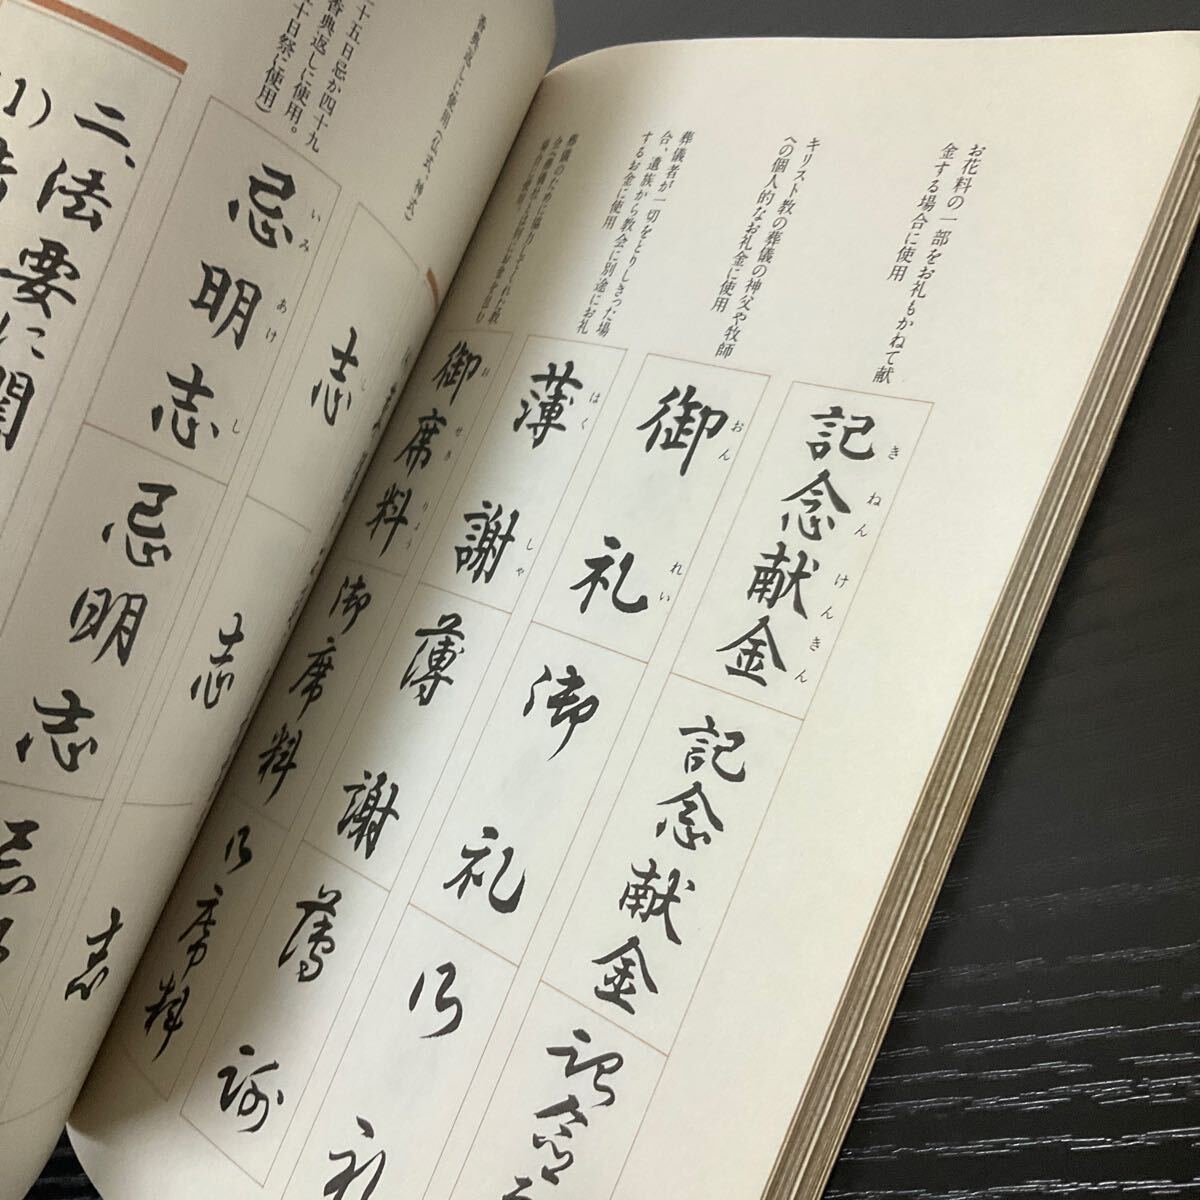 お花料の一部をお礼もかねて献
金する場合に使用
記念献金
きねんけんきん
記念献金
キリスト教の葬儀の神父や牧師
への個人的なお礼金に使用
御礼
おんれい
御礼
御礼
葬儀者が一切をとりしきった場
合、遺族から教会に別途にお礼
するお金に使用
薄謝
はくしゃ
薄謝
薄謝
葬儀のために協力してくれた教
御席料
おせきりょう
御席料
御席料
香典返しに使用(仏式、神式)
志
し
志
志
十五日忌か四十九
香典返しに使用。
十日祭に使用)
忌明志
いみあけし
忌明志
二、法要に関